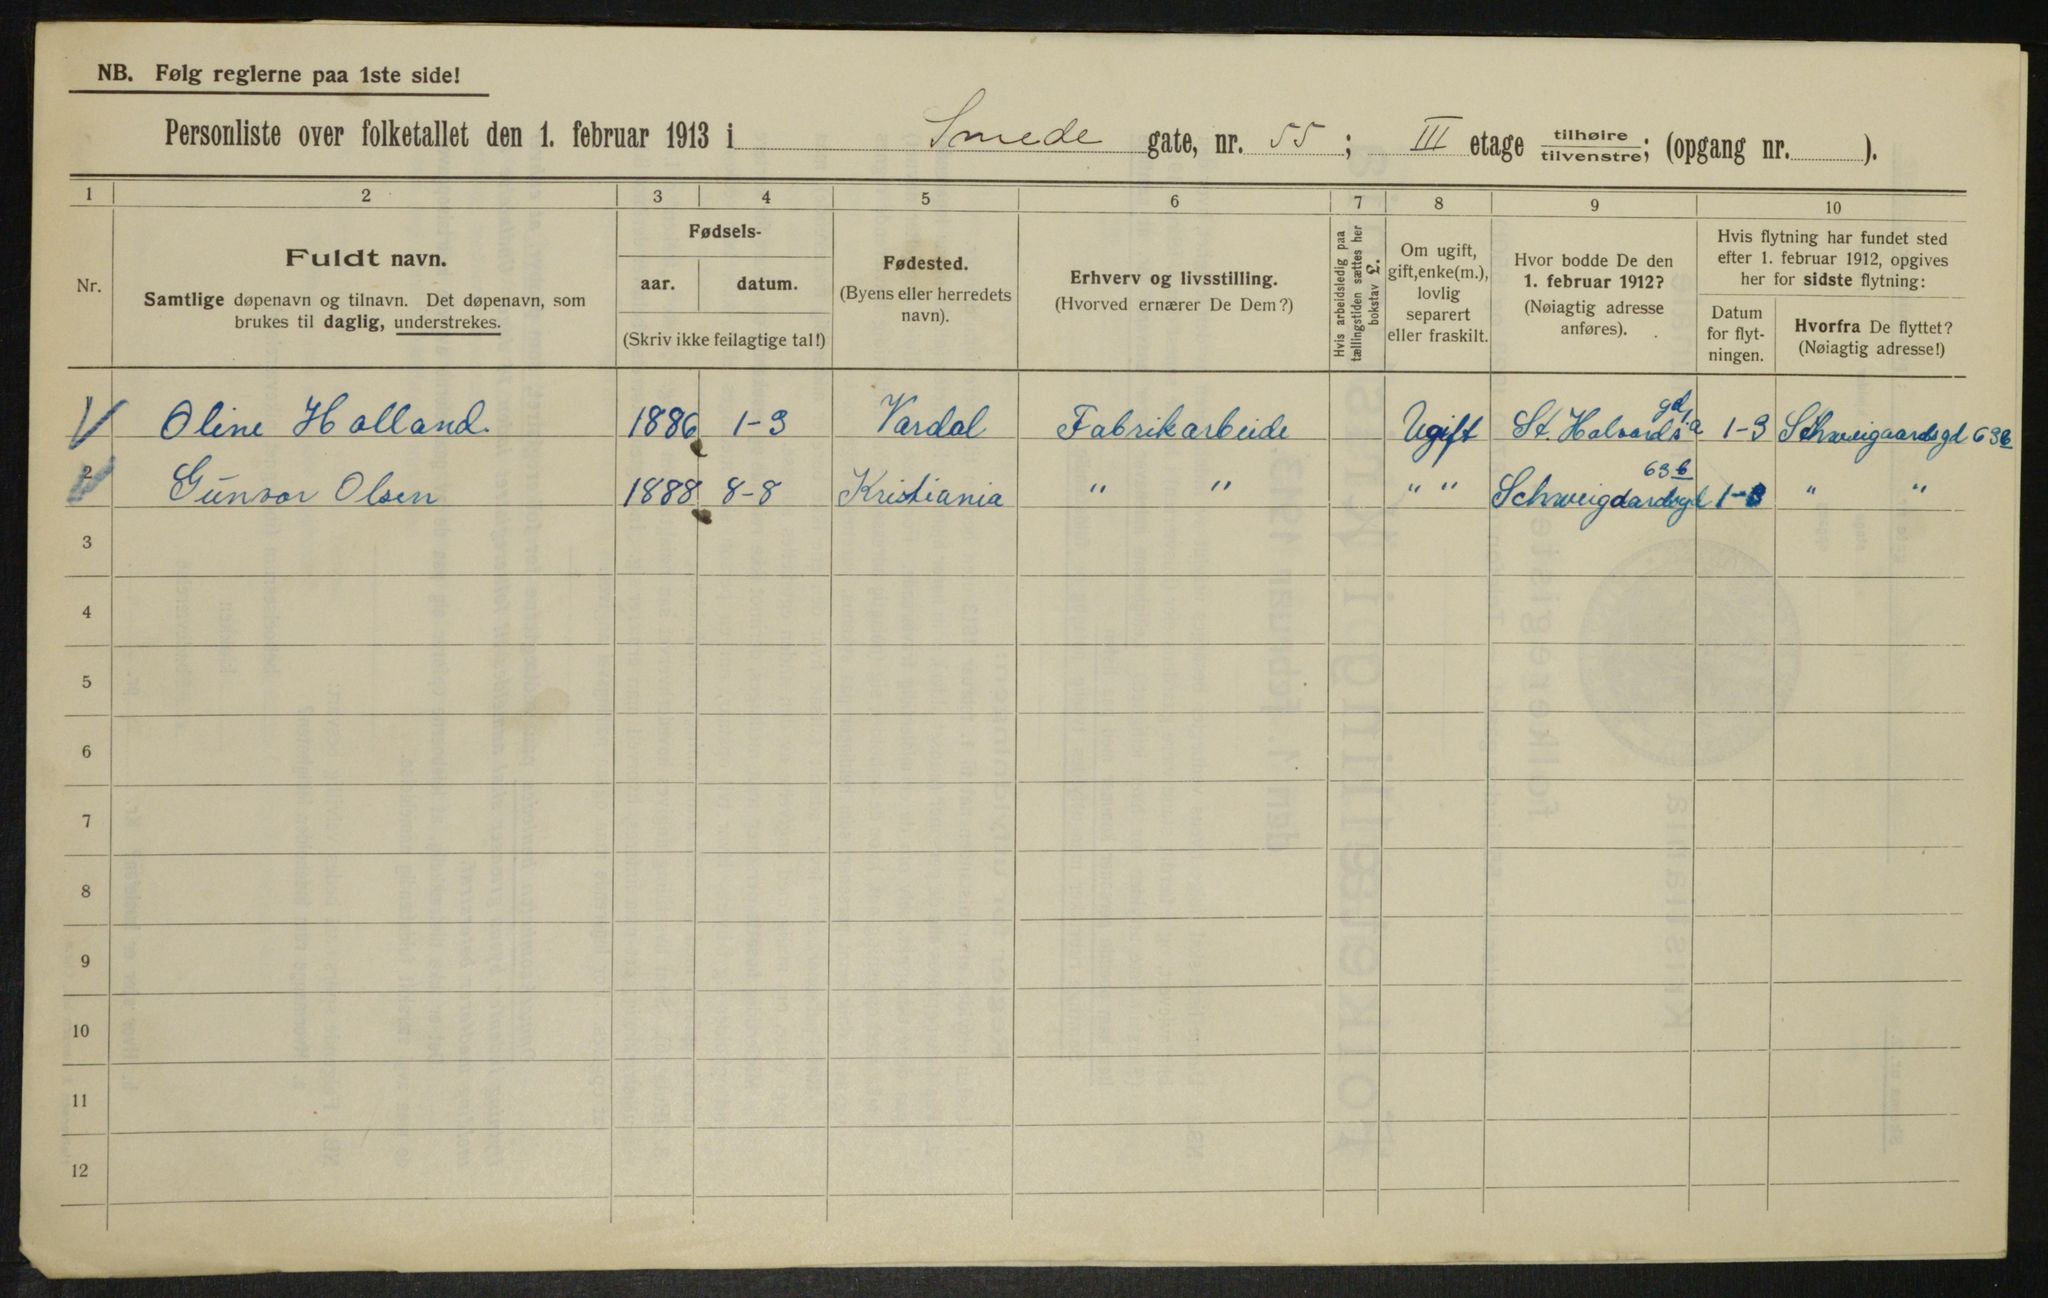 NB. Følg reglerne paa 1ste side!
Personliste over folketallet den 1. februar 1913 i Smede gate, nr. 55; III etage tilhøire/tilvenstre; (opgang nr. ).
1 2 3 4 5 6 7 8 9 10
Nr.
Fuldt navn.
Samtlige døpenavn og tilnavn. Det døpenavn, som
brukes til daglig, understrekes.
Fødsels-
aar. datum.
(Skriv ikke feilagtige tal!)
Fødested.
(Byens eller herredets
navn).
Erhverv og livsstilling.
(Hvorved ernærer De Dem?)
Hvis arbeidsledig paa
tællingstiden sættes her
bokstav L.
Om ugift,
gift, enke(m.),
lovlig
separert
eller fraskilt.
Hvor bodde De den
1. februar 1912?
(Nøiagtig adresse
anføres).
Hvis flytning har fundet sted
efter 1. februar 1912, opgives
her for sidste flytning:
Datum
for flyt-
ningen.
Hvorfra De flyttet?
(Nøiagtig adresse!)
Oline Holland. 1886 1-3 Vardal Fabrikarbeide Ugift St. Halvards gd 1-3 Schweigaardsgd 63b
2 Gunvor Olsen 1888 8-8 Kristiania " " " " Schweigaardsgd 63b 1-3 " "
3
4
5
6
7
8
9
10
11
12